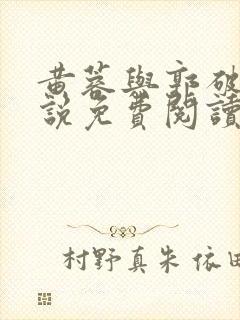 黄蓉與郭破
說免費閱讀
村野真朱 依田